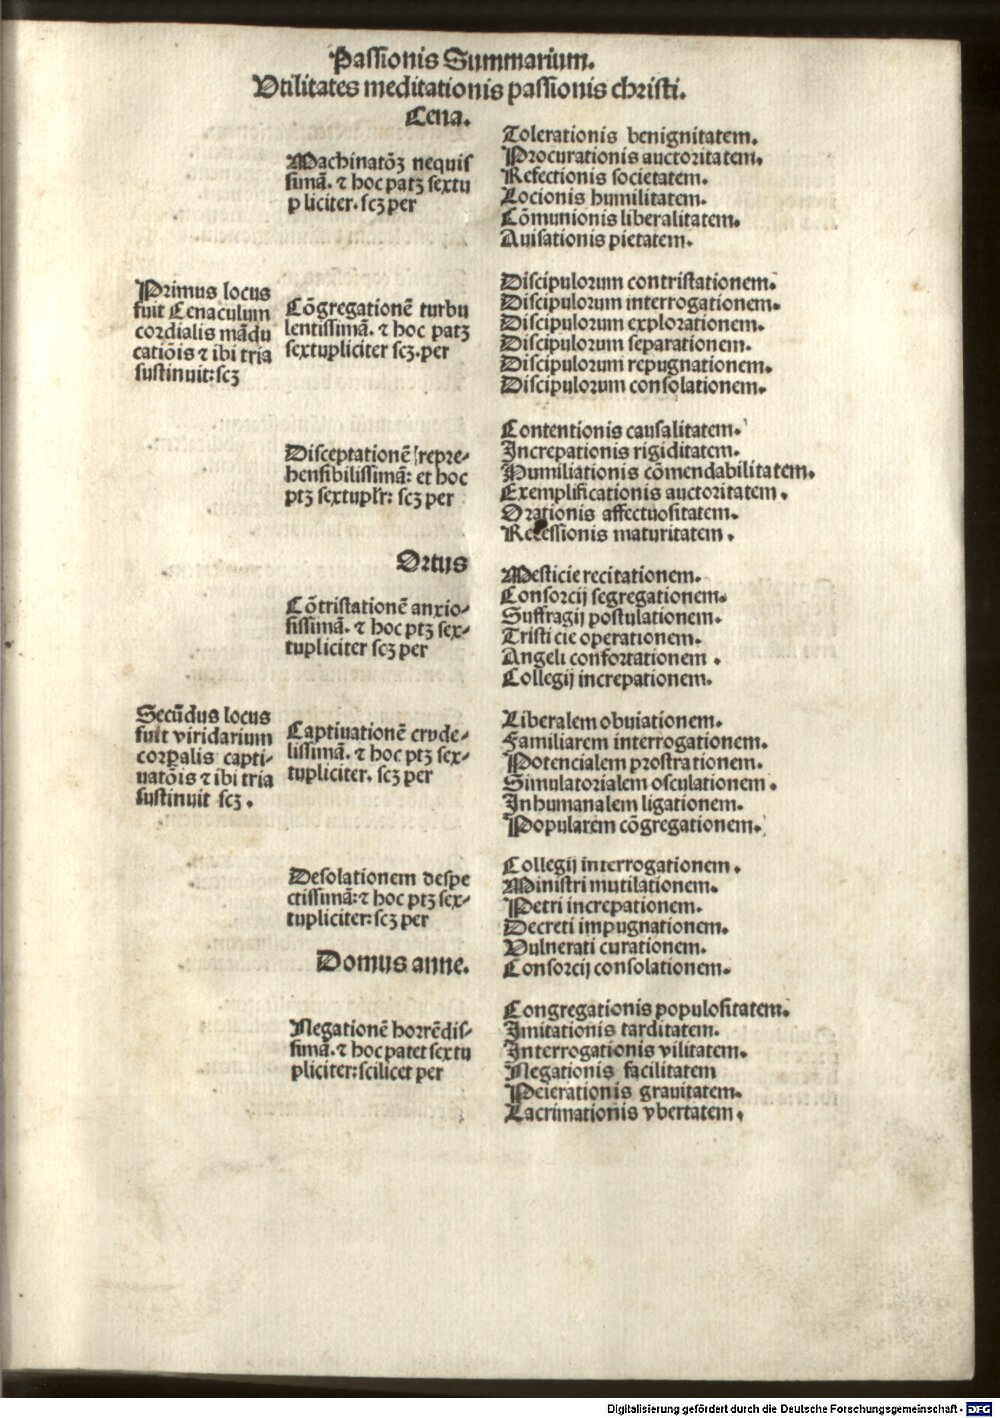 Passionis Summarium.
Vtilitates meditationis passionis christi.
Cena.
Primus locus
fuit Cenaculum
cordialis mãdu
catiõis ⁊ ibi tria
sustinuit: scꝫ
Machinatõꝫ nequis
simã. ⁊ hoc patꝫ sextu
pliciter. scꝫ per
Tolerationis benignitatem.
Procurationis auctoritatem.
Refectionis societatem.
Locionis humilitatem.
Cõmunionis liberalitatem.
Auisationis pietatem.
Cõgregationẽ turbu
lentissimã. ⁊ hoc patꝫ
sextupliciter scꝫ. per
Discipulorum contristationem.
Discipulorum interrogationem.
Discipulorum explorationem.
Discipulorum separationem.
Discipulorum repugnationem.
Discipulorum consolationem.
Disceptationẽ repre-
hensibilissimã: et hoc
ptꝫ sextuplr: scꝫ per
Contentionis causalitatem.
Increpationis rigiditatem.
Humiliationis cõmendabilitatem.
Exemplificationis auctoritatem.
Orationis affectuositatem.
Recessionis maturitatem.
Ortus
Secũdus locus
fuit viridarium
corꝑalis capti-
uatõis ⁊ ibi tria
sustinuit scꝫ.
Cõtristationẽ anxio-
sissimã. ⁊ hoc ptꝫ sex-
tupliciter scꝫ per
Mesticie recitationem.
Consorcij segregationem.
Suffragij postulationem.
Tristicie operationem.
Angeli confortationem.
Collegij increpationem.
Captiuationẽ crude-
lissimã. ⁊ hoc ptꝫ sex-
tupliciter. scꝫ per
Liberalem obuiationem.
Familiarem interrogationem.
Potencialem prostrationem.
Simulatorialem osculationem.
Inhumanalem ligationem.
Popularem cõgregationem.
Desolationem despe
ctissimã: ⁊ hoc ptꝫ sex-
tupliciter: scꝫ per
Collegij interrogationem.
Ministri mutilationem.
Petri increpationem.
Decreti impugnationem.
Vulnerati curationem.
Consorcij consolationem.
Domus anne.
Negationẽ horrẽdis-
simã. ⁊ hoc patet sextu
pliciter: scilicet per
Congregationis populositatem.
Imitationis tarditatem.
Interrogationis vilitatem.
Negationis facilitatem
Peierationis grauitatem.
Lacrimationis vbertatem.
Digitalisierung gefördert durch die Deutsche Forschungsgemeinschaft - DFG